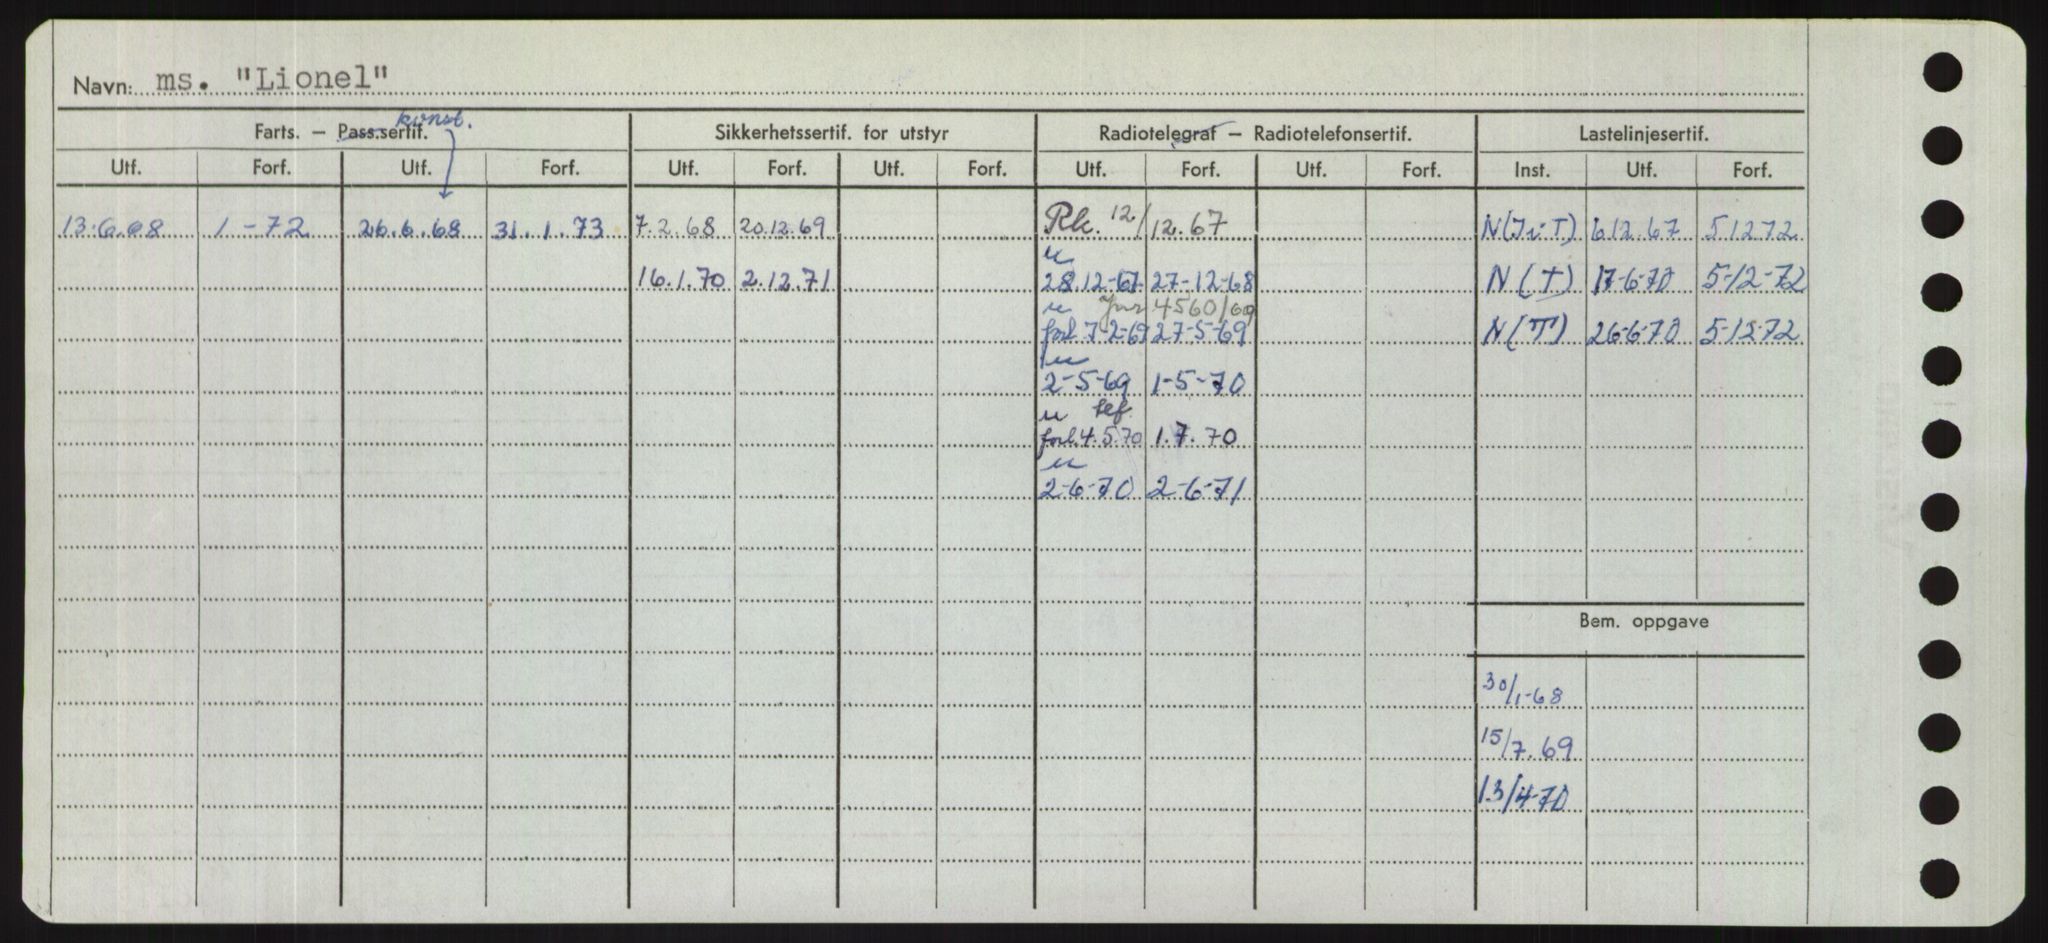 Navn: ms. "Lionel"
konst.
Farts. – Pass.sertif. Sikkerhetssertif. for utstyr Radiotelegraf – Radiotelefonsertif. Lastelinjesertif.
Utf. Forf. Utf. Forf. Utf. Forf. Utf. Forf. Utf. Forf. Utf. Forf. Inst. Utf. Forf.
13.6.68 1-72 26.6.68 31.1.73 7.2.68 20.12.69 Rk. 12/12.67 6.12.67 5.12.72
u
16.1.70 2.12.71 28.12-67 27-12-68 N(T) 17-6-70 5-12-72
u 4560/69
forl. 7-2-69 27-5-69 N(T) 26-6-70 5-12-72
u
2-5-69 1-5-70
u tlf.
forl. 4.5.70 1.7.70
u
2-6-70 2-6-71
Bem. oppgave
30/1-68
15/7.69
13/4-70